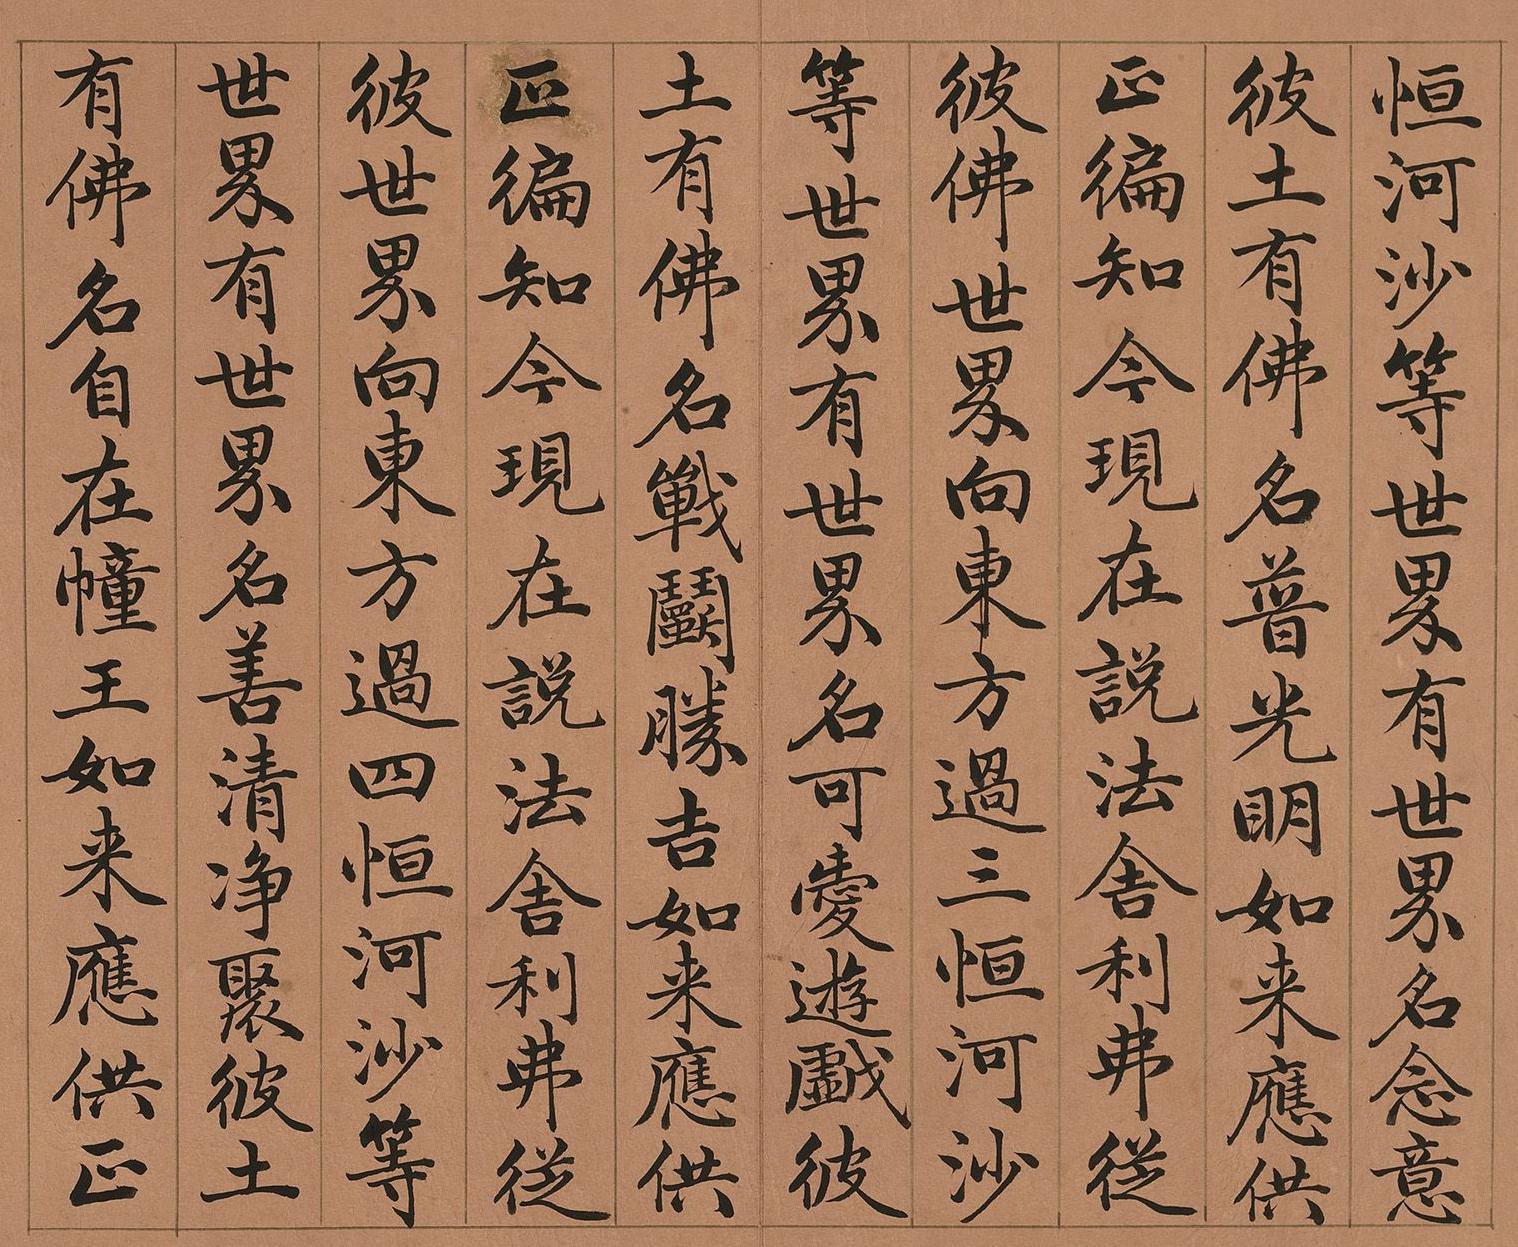 恒河沙等世界有世界名念意
彼土有佛名普光明如来應供
正徧知今現在説法舎利弗從
彼佛世界向東方過三恒河沙
等世界有世界名可愛遊戯彼
土有佛名戰鬭勝吉如来應供
正徧知今現在説法舎利弗從
彼世界向東方過四恒河沙等
世界有世界名善清净聚彼土
有佛名自在幢王如来應供正